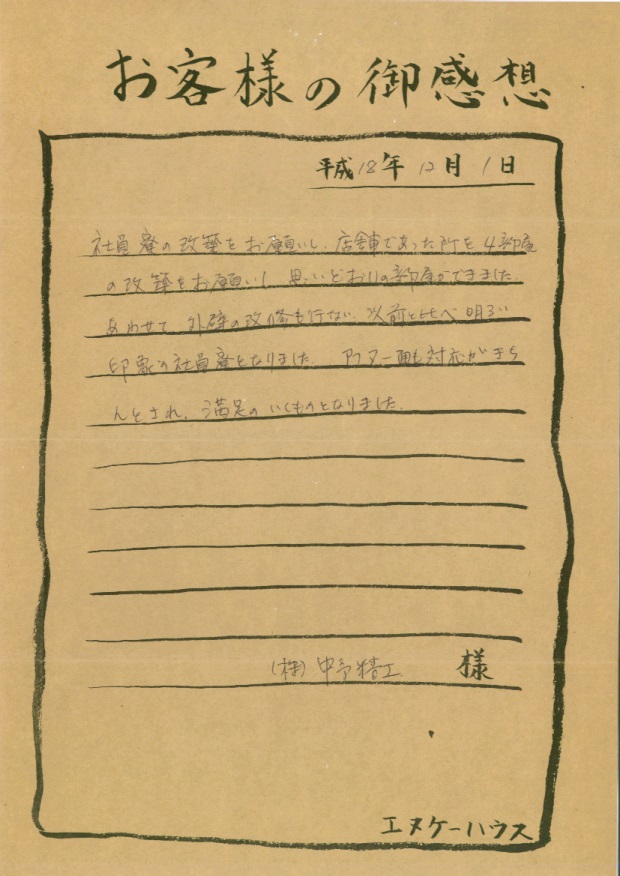 お客様の御感想
平成18年12月1日
社員寮の改築をお願いし、店舗であった所を4部屋
の改築をお願いし 思いどおりの部屋ができました。
あわせて、外壁の改修も行ない、以前と比べ明るい
印象の社員寮となりました。アフター面も対応がきち
んとされ、満足のいくものとなりました。
(株)中予精工 様
エヌケーハウス